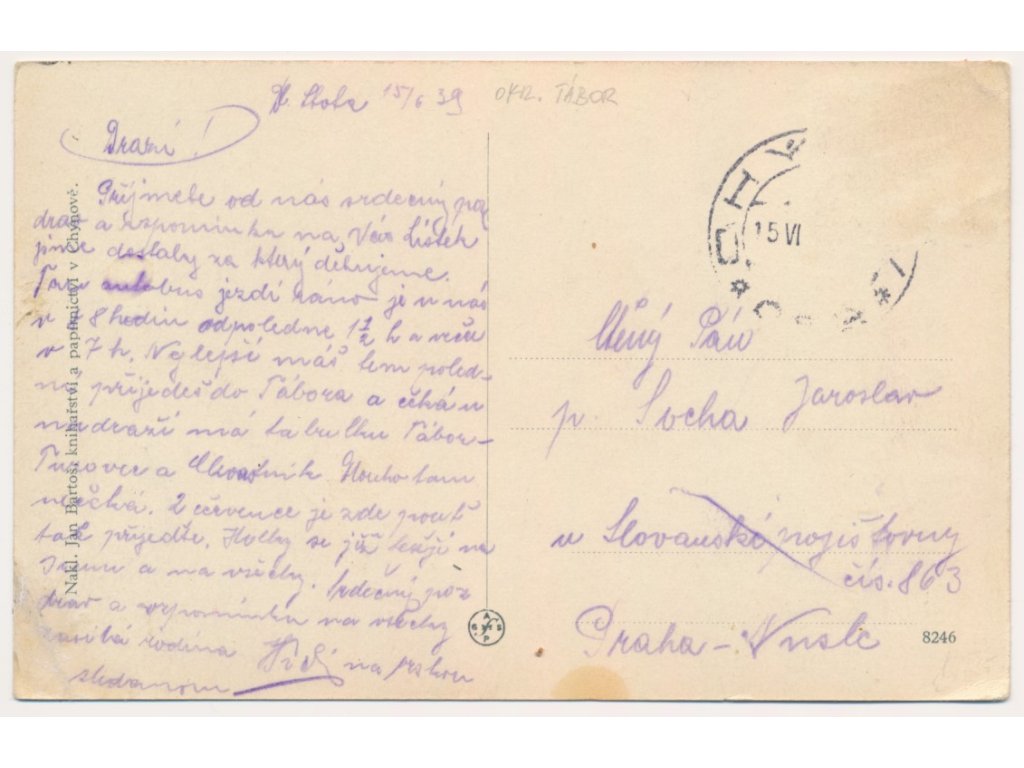 15/6 39 OKR. TÁBOR
Drazí!
Příjmete od nás srdečný poz
drav a vzpomínku na Vás Lístek
jsme dostaly za který děkujeme.
Tam autobus jezdí ráno je u nás
v 8 hodin odpoledne 1 1/2 h a večer
v 7 h. Nejlepší máš tem poled-
ne, přijedeš do Tábora a čeká u
nadraží má tabulku Tábor-
Turovec a Chotčník. Dlouho tam
nečká. 2 července je zde pouť
tak přijeďte. Holky se již těšejí na
a na všechy. Srdečný poz
drav a vzpomínku na všechy
zasílá rodina
na brzkou
shledanou
Nakl. Jan Bartoš, knihařství a papírnictví v Chýnově.
15 VI
Ctěný Pán
p. Socha Jaroslav
u Slovanské pojišťovny
čís. 863
Praha - Nusle
8246